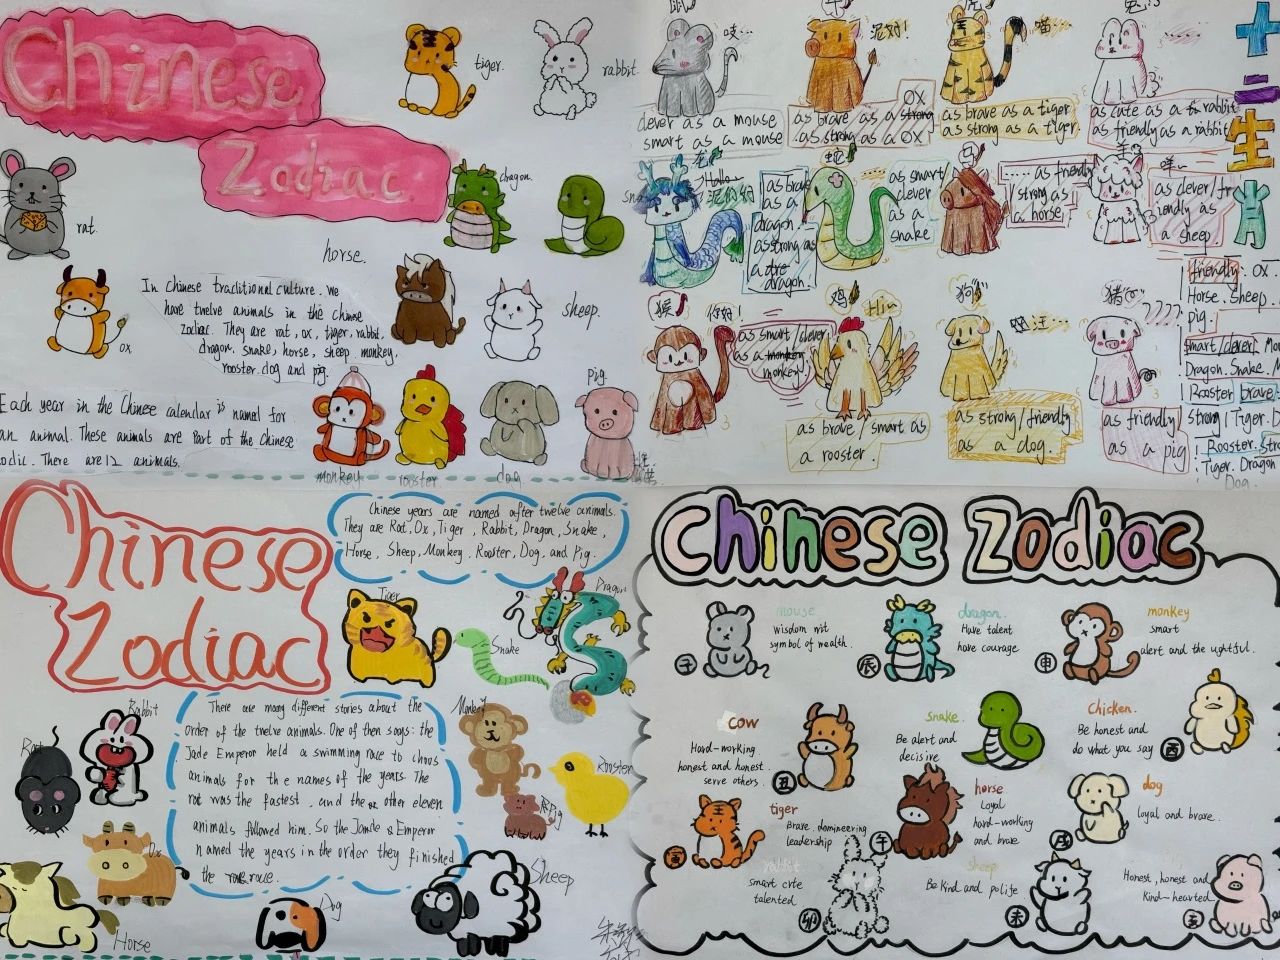 Chinese
Zodiac
tiger.
rabbit
rat.
dragon.
horse.
sheep.
ox
In Chinese traditional culture. we
have twelve animals in the Chinese
Zodiac. They are rat, ox, tiger, rabbit,
dragon. snake, horse, sheep monkey.
rooster. dog and pig.
Each year in the Chinese calendar is named for
an animal. These animals are Part of the Chinese
odic. There are 12 animals.
pig.
monkey
rooster
dog
吱…
泥好!
喵…
十
二
生
clever as a mouse
smart as a mouse
as brave as a OX
as strong as a OX
as brave as a tiger
as strong as a tiger
as cute as a rabbit
as friendly as a rabbit
龙
Hello~
as brave
as a
dragon.
as strong as
a dre
dragon.
蛇
as smart/
clever
as a
snake
马
as friendly/
strong as
a horse
羊
咩~
as clever/fri
endly as
a sheep.
猴
你好!
as smart/clever
as a monkey
monkey
鸡
Hi~
as brave/smart as
a rooster.
狗
汪…
as strong/friendly
as a dog.
猪
????
as friendly
as a pig
friendly: OX.
Horse. Sheep.
pig.
smart/clever:
Dragon. Snake. M
Rooster brave
strong/Tiger.
Rooster. Stro
Tiger. Dragon
Dog.
Chinese
Zodiac
Chinese years are named after twelve animals.
They are Rat. Ox, Tiger, Rabbit, Dragon, Snake,
Horse, Sheep, Monkey. Rooster, Dog, and Pig.
Tiger
Snake
Dragon
Rabbit
Rat
Monkey
Rooster
Pig
Ox
There are many different stories about the
order of the twelve animals. One of then says: the
Jade Emperor held a swimming race to choos
animals for the names of the years. The
rat was the fastest, and the other eleven
animals followed him. So the Jamde Emperor
named the years in the order they finished
the race.
Horse
Dog
Sheep
Chinese Zodiac
mouse
wisdom wit
symbol of wealth.
子
dragon.
Have talent
have courage
辰
monkey
smart
alert and the ughtful.
申
cow
Hard-working.
honest and honest.
serve others.
丑
snake.
Be alert and
decisive
Chicken.
Be honest and
do what you say
酉
tiger
Brave, domineering
leadership
寅
horse
Loyal
hard-working
and brave
午
dog
loyal and brave.
戌
rabbit
smart cute
talented.
卯
sheep
Be kind and polite
未
Honest, honest and
kind-hearted
亥